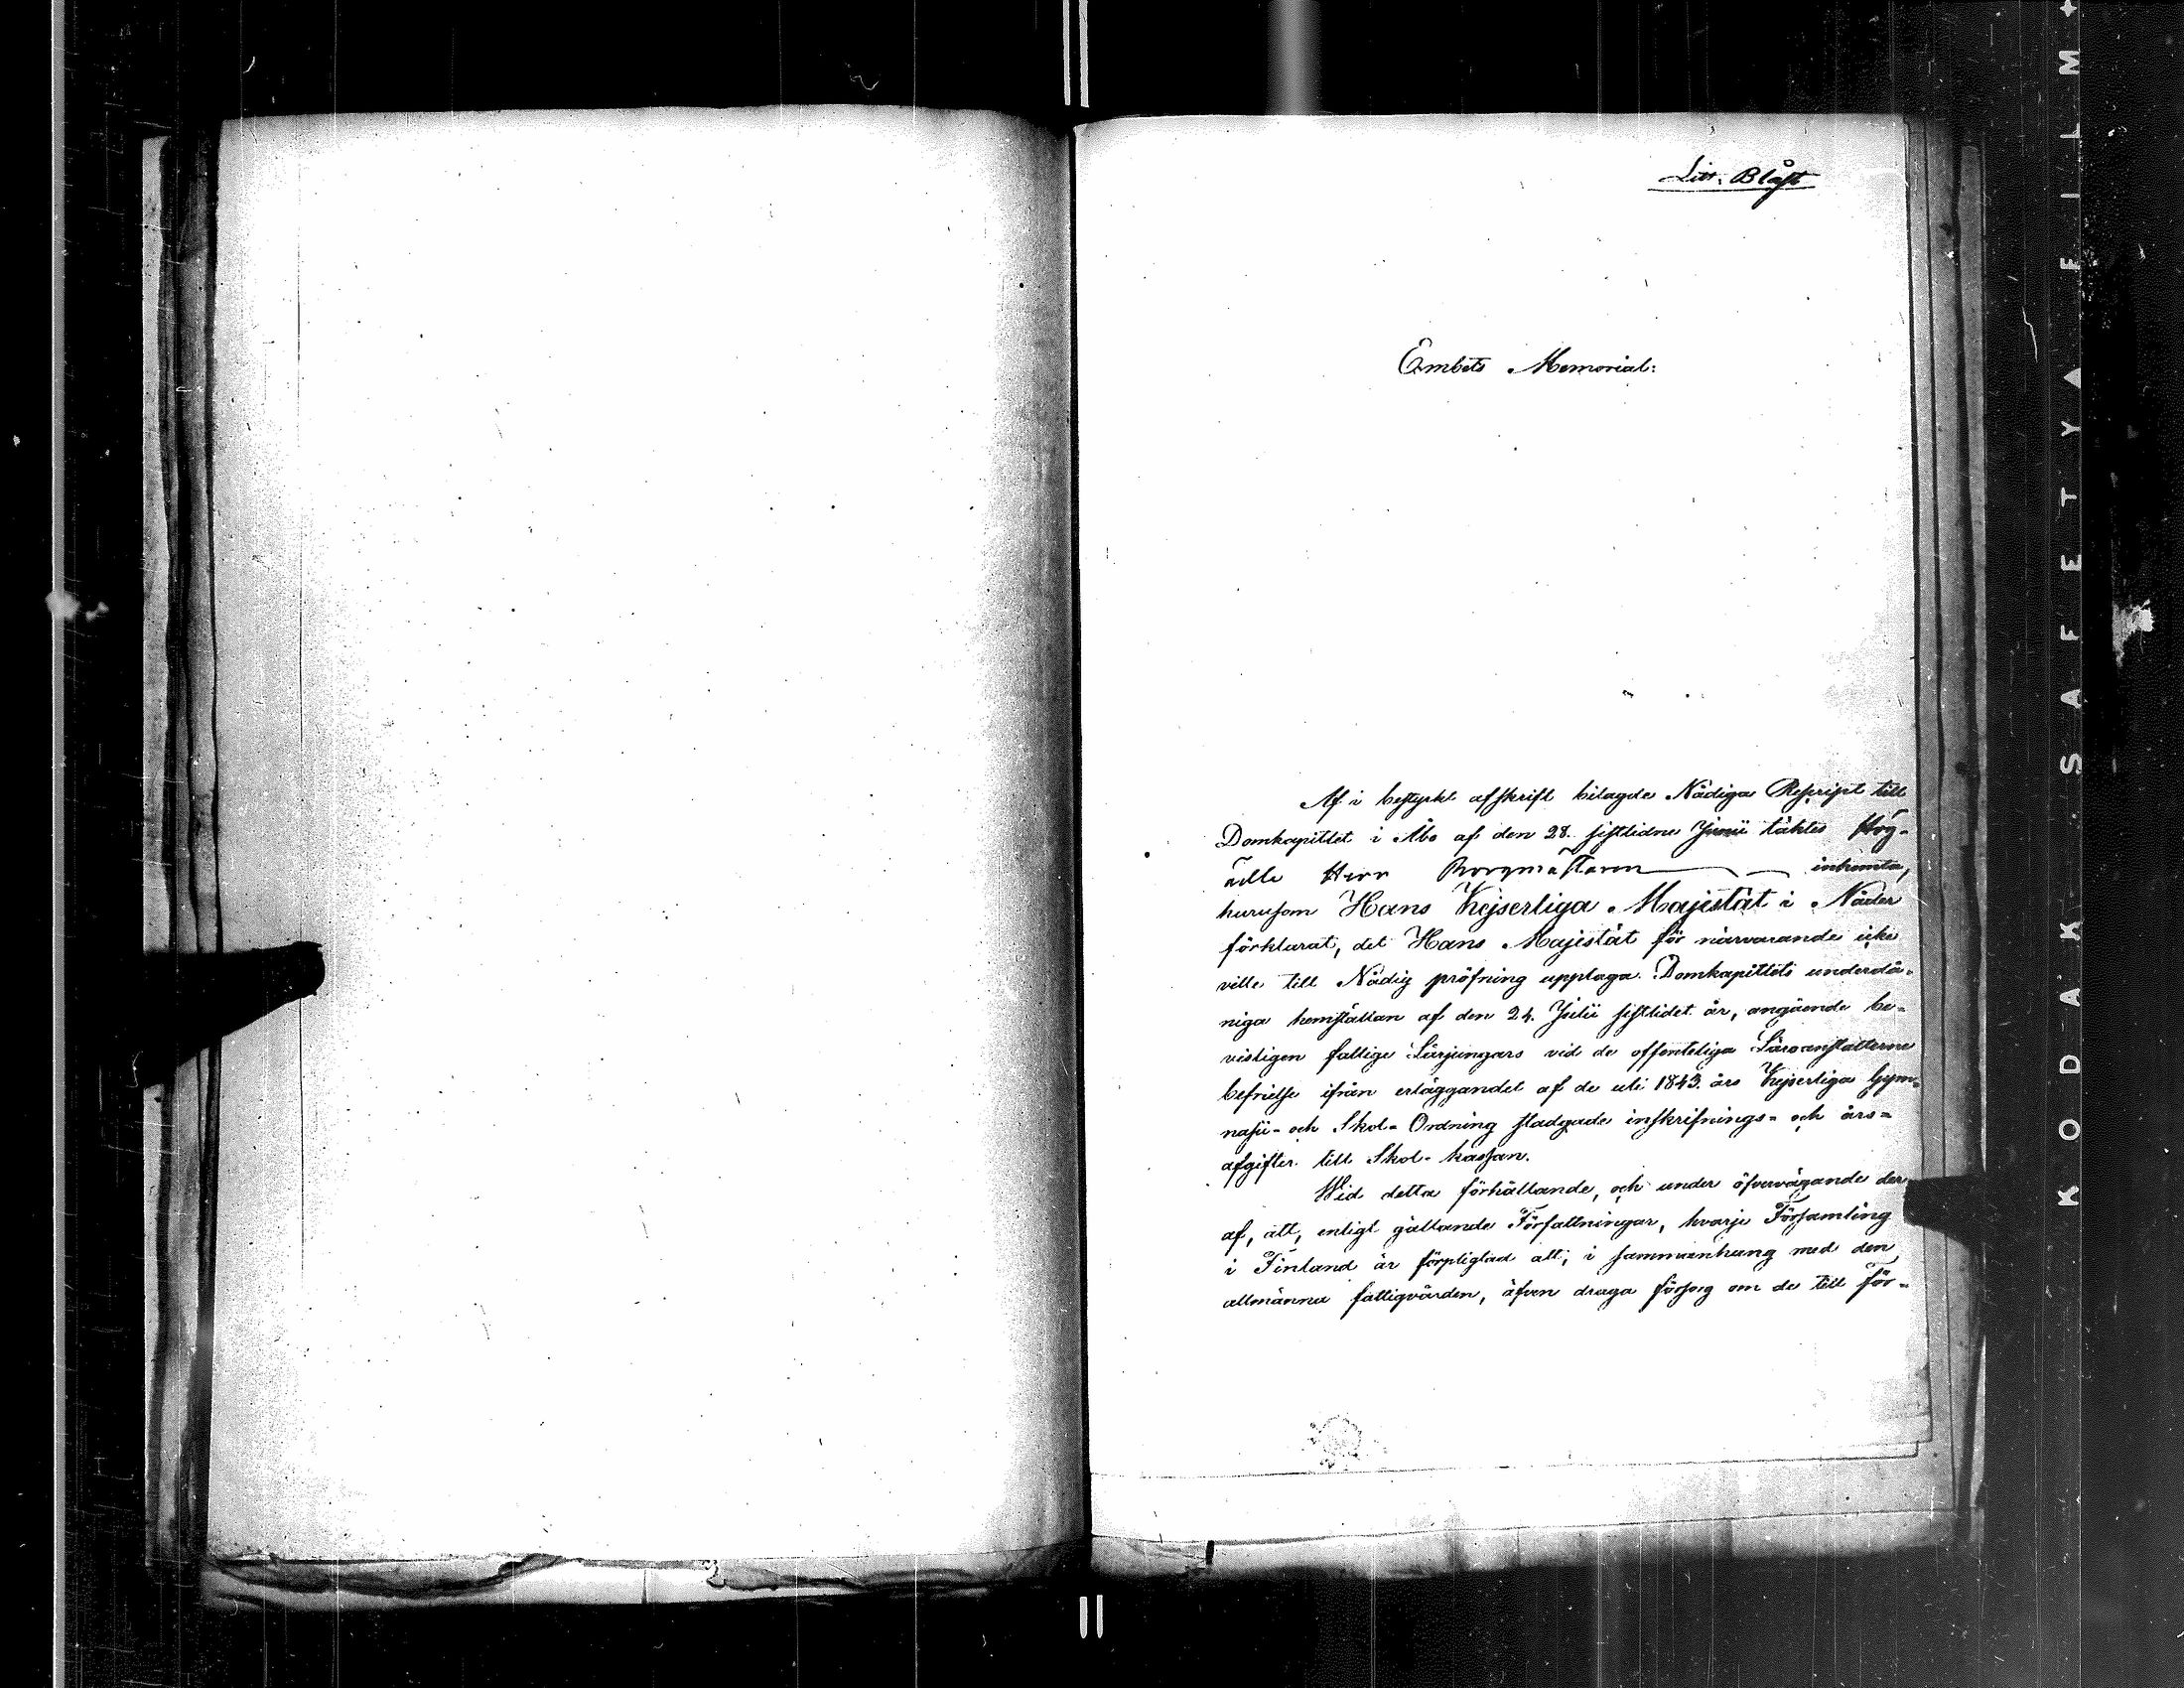 Litt. B låst
Embets Memorial:
Af i bestyrkt afskrift bilagde Nådiga Reskript till
Domkapitlet i Åbo af den 28. sistlidne Junii täktes Hög-
ädle Herr Borgmästaren inhemta,
hurusom Hans Kejserliga Majestät i Nåder
förklarat, det Hans Majestät för närvarande icke
ville till Nådig pröfning upptaga Domkapitlets underdå-
niga hemställan af den 24. Julii sistlidet år, angående be-
visligen fattige Lärjungars vid de offenteliga Läroanstalterne
befrielse ifrån erläggandet af de uti 1843. års Kejserliga Gym-
nasii- och Skol-Ordning stadgade inskrifnings- och års-
afgifter till Skol-kassan.
Wid detta förhållande, och under öfvervägande der-
af, att, enligt gällande Författningar, hvarje Församling
i Finland är förpligtad att, i sammanhang med den
allmänna fattigvården, äfven draga försorg om de till för-
KODAK SAFETY FILM